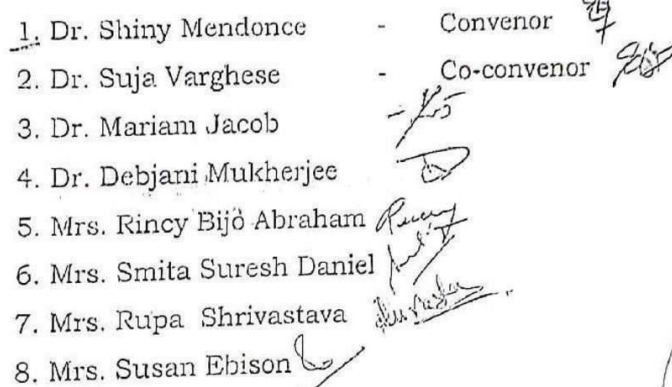 1. Dr. Shiny Mendonce - Convenor
2. Dr. Suja Varghese - Co-convenor
3. Dr. Mariam Jacob -
4. Dr. Debjani Mukherjee
5. Mrs. Rincy Bijo Abraham
6. Mrs. Smita Suresh Daniel
7. Mrs. Rupa Shrivastava
8. Mrs. Susan Ebison